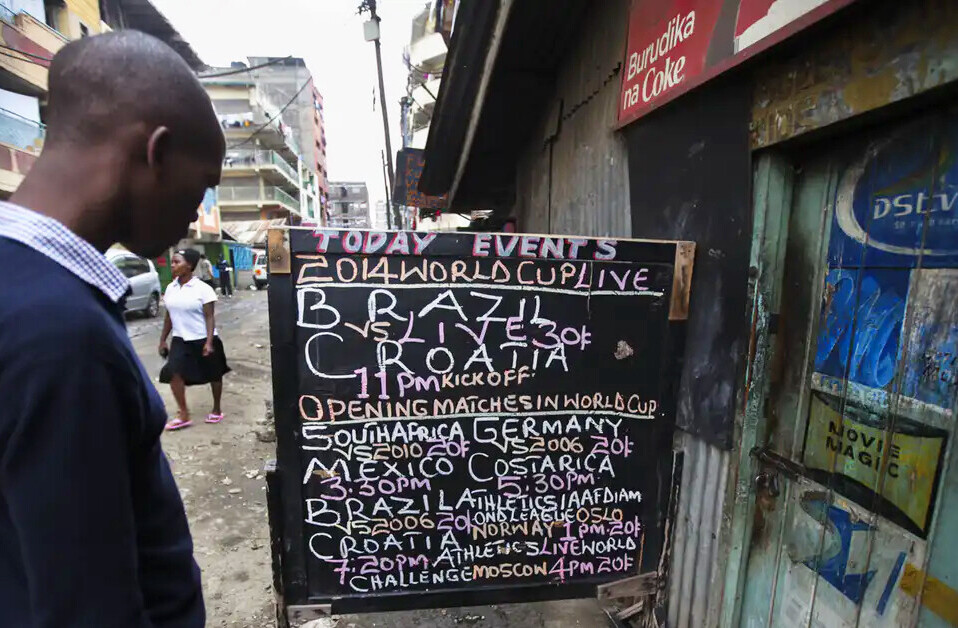 Burudika
na Coke
TODAY EVENTS
2014 WORLD CUP LIVE
BRAZIL
VS LIVE 30/=
CROATIA
11PM KICK OFF
OPENING MATCHES IN WORLD CUP
SOUTHAFRICA GERMANY
VS 2010 20/= VS 2006 20/=
MEXICO COSTARICA
3:30PM 5:30PM
BRAZIL ATHLETICS IAAF DIAM
VS 2006 20/= OND LEAGUE OSLO
CROATIA NORWAY 1PM 20/=
7:20PM ATHLETICS LIVE WORLD
CHALLENGE MOSCOW 4PM 20/=
DStv
MOVIE
MAGIC